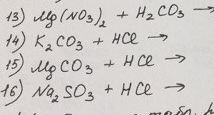 13) Mg(NO₃)₂ + H₂CO₃ →
14) K₂CO₃ + HCl →
15) MgCO₃ + HCl →
16) Na₂SO₃ + HCl →